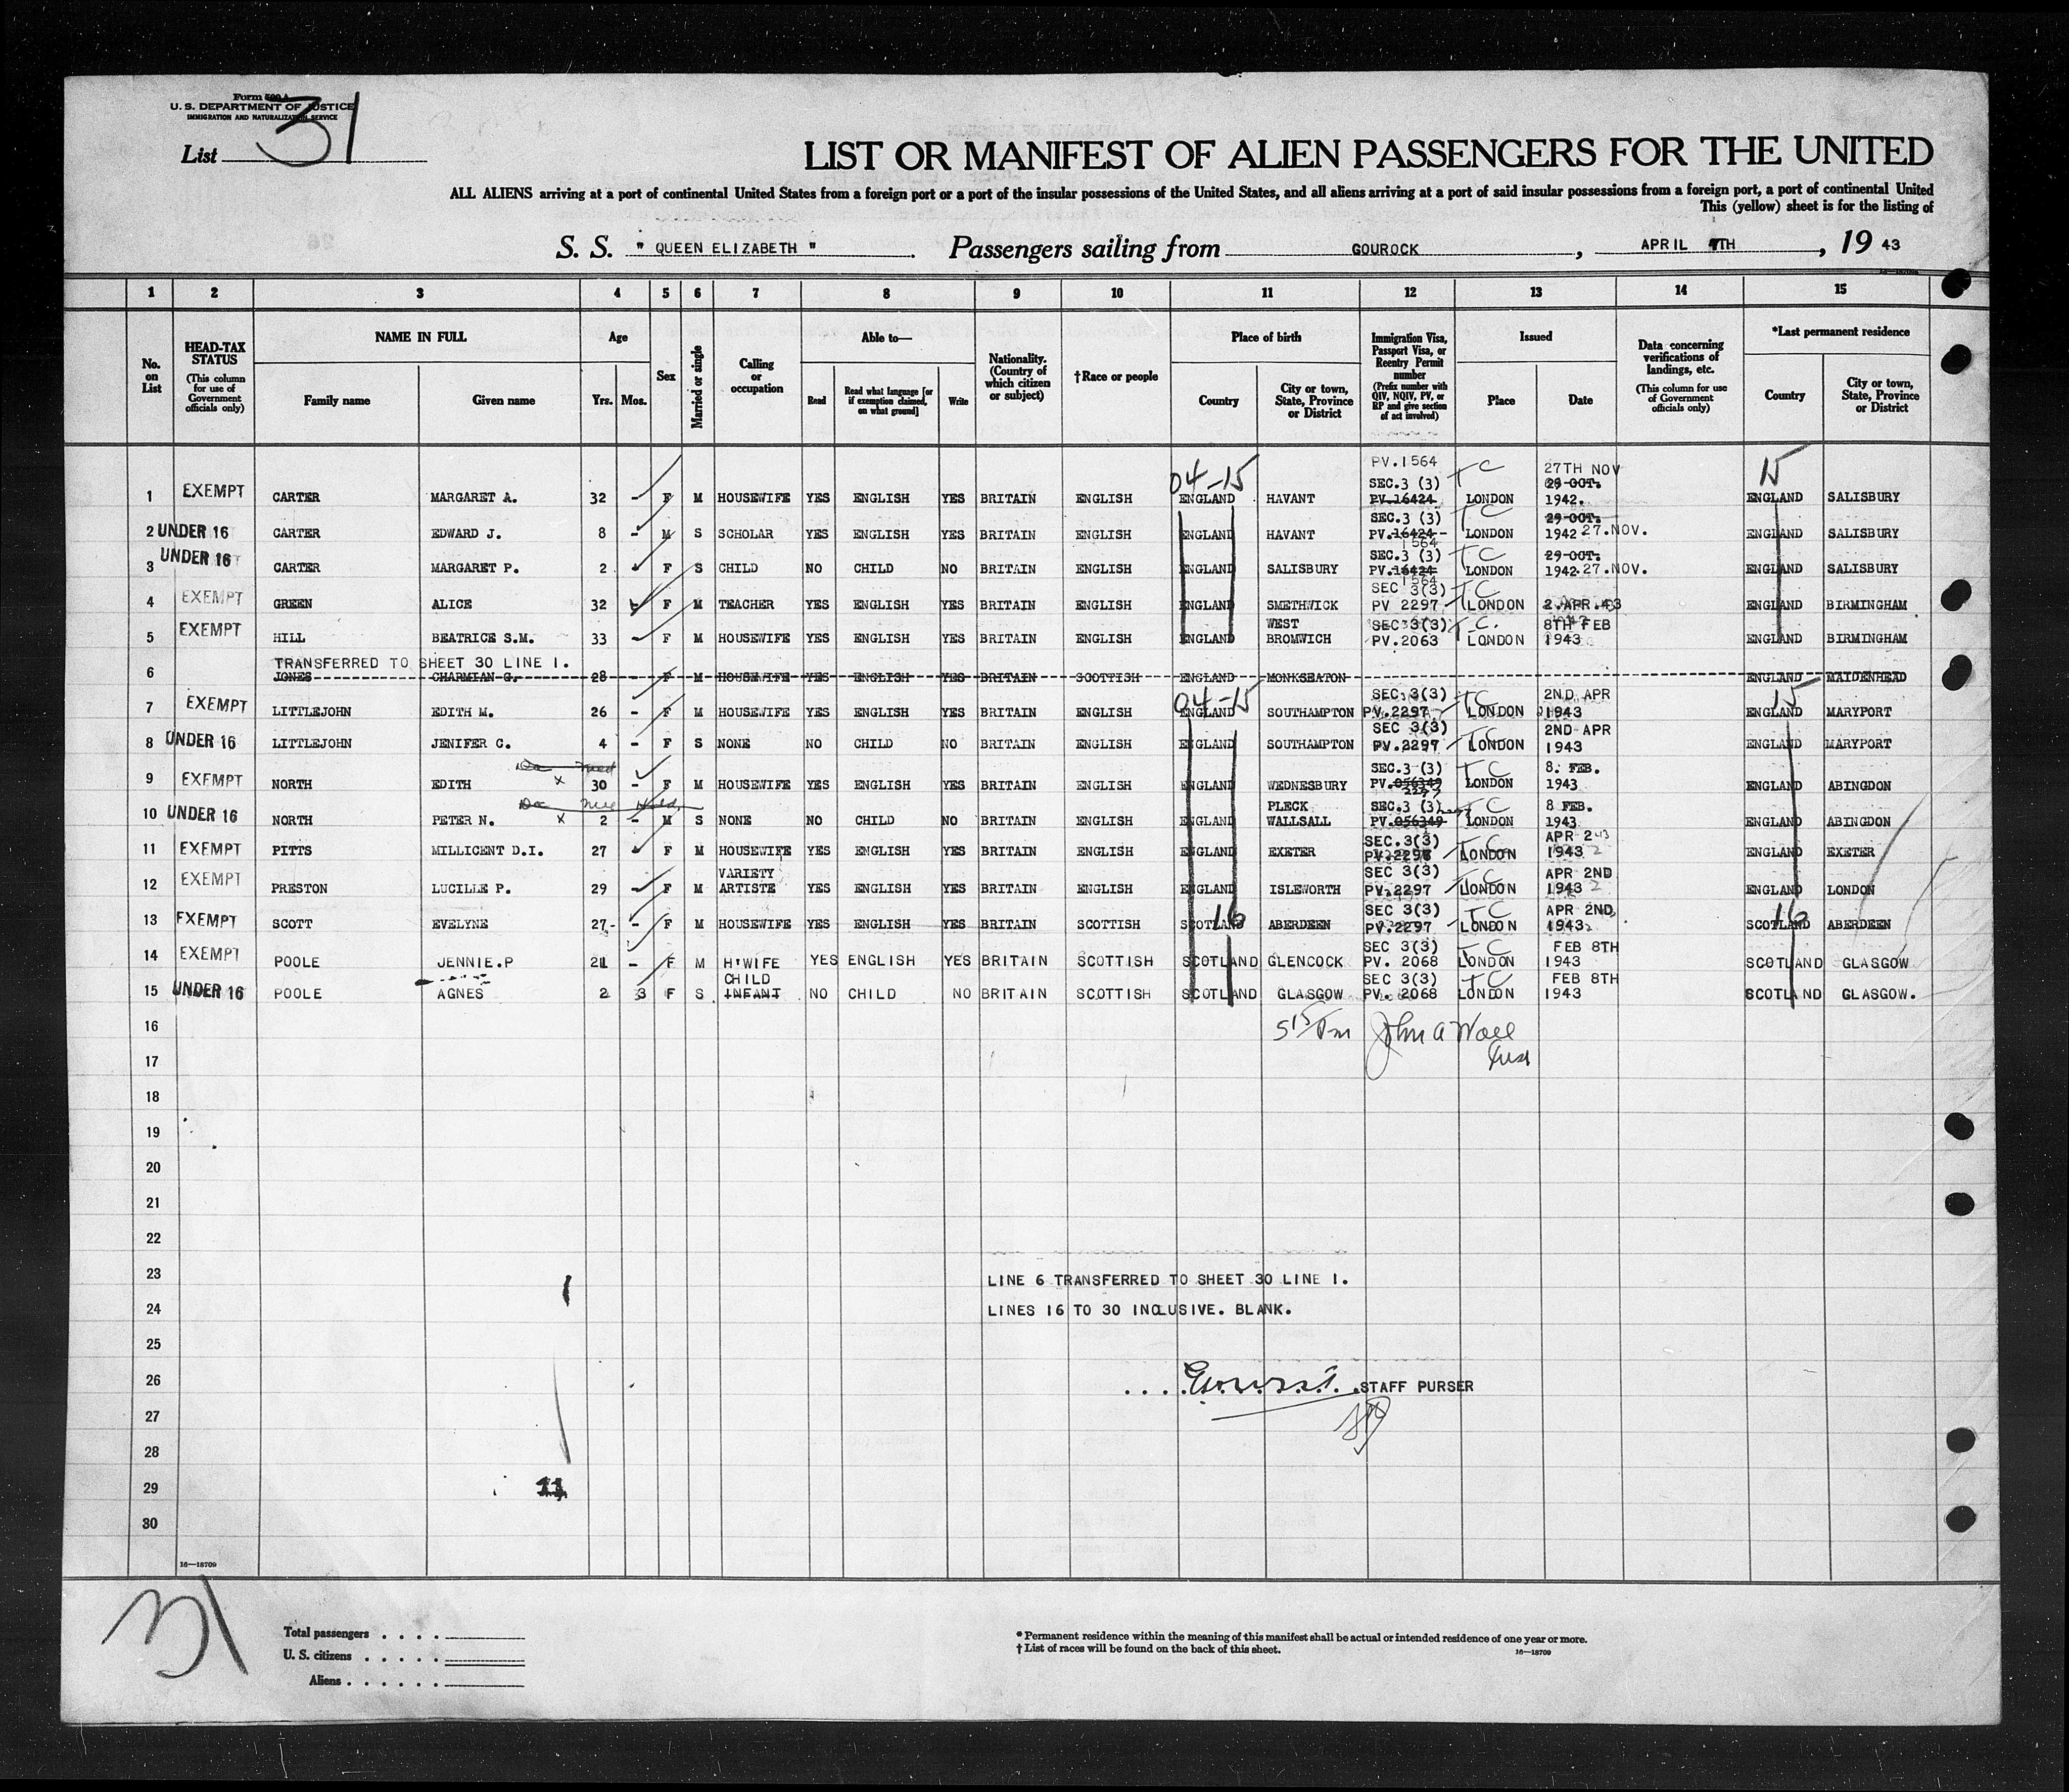 Form 500 A
U. S. DEPARTMENT OF JUSTICE
IMMIGRATION AND NATURALIZATION SERVICE
List 31
LIST OR MANIFEST OF ALIEN PASSENGERS FOR THE UNITED
ALL ALIENS arriving at a port of continental United States from a foreign port or a port of the insular possessions of the United States, and all aliens arriving at a port of said insular possessions from a foreign port, a port of continental United
This (yellow) sheet is for the listing of
S. S. " QUEEN ELIZABETH " Passengers sailing from GOUROCK, APRIL 7TH, 19 43
16—18709
1 2 3 4 5 6 7 8 9 10 11 12 13 14 15
No. on List
HEAD-TAX STATUS (This column for use of Government officials only)
NAME IN FULL Family name Given name
Age Yrs. Mos.
Sex
Married or single
Calling or occupation
Able to— Read Read what language [or if exemption claimed, on what ground] Write
Nationality. (Country of which citizen or subject)
†Race or people
Place of birth Country City or town, State, Province or District
Immigration Visa, Passport Visa, or Reentry Permit number (Prefix number with QIV, NQIV, PV, or RP and give section of act involved)
Issued Place Date
Data concerning verifications of landings, etc. (This column for use of Government officials only)
*Last permanent residence Country City or town, State, Province or District
04-15 PV.1564 T C 27TH NOV 15
1 EXEMPT CARTER MARGARET A. 32 - F M HOUSEWIFE YES ENGLISH YES BRITAIN ENGLISH ENGLAND HAVANT SEC.3 (3) PV.16424 LONDON 29 OCT. 1942. ENGLAND SALISBURY
2 UNDER 16 CARTER EDWARD J. 8 - M S SCHOLAR YES ENGLISH YES BRITAIN ENGLISH ENGLAND HAVANT SEC.3 (3) PV.16424 1564 T C LONDON 29 OCT. 1942 27.NOV. ENGLAND SALISBURY
3 UNDER 16 CARTER MARGARET P. 2 - F S CHILD NO CHILD NO BRITAIN ENGLISH ENGLAND SALISBURY SEC.3 (3) PV.16424 1564 T C LONDON 29 OCT. 1942 27.NOV. ENGLAND SALISBURY
4 EXEMPT GREEN ALICE 32 - F M TEACHER YES ENGLISH YES BRITAIN ENGLISH ENGLAND SMETHWICK SEC 3(3) PV 2297 T C LONDON 2.APR.43 ENGLAND BIRMINGHAM
5 EXEMPT HILL BEATRICE S.M. 33 - F M HOUSEWIFE YES ENGLISH YES BRITAIN ENGLISH ENGLAND WEST BROMWICH SEC 3(3) PV.2063 T C. LONDON 8TH FEB 1943 ENGLAND BIRMINGHAM
TRANSFERRED TO SHEET 30 LINE 1.
6 JONES CHARMIAN G. 28 - F M HOUSEWIFE YES ENGLISH YES BRITAIN SCOTTISH ENGLAND MONKSEATON ENGLAND MAIDENHEAD
04-15 15
7 EXEMPT LITTLEJOHN EDITH M. 26 - F M HOUSEWIFE YES ENGLISH YES BRITAIN ENGLISH ENGLAND SOUTHAMPTON SEC.3(3) PV.2297 T C LONDON 2ND APR 1943 ENGLAND MARYPORT
8 UNDER 16 LITTLEJOHN JENIFER C. 4 - F S NONE NO CHILD NO BRITAIN ENGLISH ENGLAND SOUTHAMPTON SEC 3(3) PV.2297 T C LONDON 2ND APR 1943 ENGLAND MARYPORT
9 EXEMPT NORTH EDITH x 30 - F M HOUSEWIFE YES ENGLISH YES BRITAIN ENGLISH ENGLAND WEDNESBURY SEC.3 (3) PV.056349 2297 T C LONDON 8. FEB. 1943 ENGLAND ABINGDON
10 UNDER 16 NORTH PETER N. x 2 - M S NONE NO CHILD NO BRITAIN ENGLISH ENGLAND PLECK WALLSALL SEC.3 (3) PV.056349 2297 T C LONDON 8 FEB. 1943 ENGLAND ABINGDON
11 EXEMPT PITTS MILLICENT D.I. 27 - F M HOUSEWIFE YES ENGLISH YES BRITAIN ENGLISH ENGLAND EXETER SEC.3(3) PV.2298 T C LONDON APR 2 43 1943 ENGLAND EXETER
12 EXEMPT PRESTON LUCILLE P. 29 - F M VARIETY ARTISTE YES ENGLISH YES BRITAIN ENGLISH ENGLAND ISLEWORTH SEC 3(3) PV.2297 T C LONDON APR 2ND 1943 ENGLAND LONDON
13 EXEMPT SCOTT EVELYNE 27 - F M HOUSEWIFE YES ENGLISH YES BRITAIN SCOTTISH SCOTLAND 16 ABERDEEN SEC 3(3) PV.2297 T C LONDON APR 2ND 1943 SCOTLAND 16 ABERDEEN
14 EXEMPT POOLE JENNIE.P 21 - F M H'WIFE YES ENGLISH YES BRITAIN SCOTTISH SCOTLAND GLENCOCK SEC 3(3) PV. 2068 T C LONDON FEB 8TH 1943 SCOTLAND GLASGOW
15 UNDER 16 POOLE AGNES 2 3 F S CHILD INFANT NO CHILD NO BRITAIN SCOTTISH SCOTLAND GLASGOW SEC 3(3) PV. 2068 T C LONDON FEB 8TH 1943 SCOTLAND GLASGOW.
16 5 15 Pm John A Wall
17
18
19
20
21
22
23 LINE 6 TRANSFERRED TO SHEET 30 LINE 1.
24 LINES 16 TO 30 INCLUSIVE. BLANK.
25
26 STAFF PURSER
27
28
29 11
30
16—18709
31
Total passengers . . . .
U. S. citizens . . . . .
Aliens . . . . . .
* Permanent residence within the meaning of this manifest shall be actual or intended residence of one year or more.
† List of races will be found on the back of this sheet.
16—18709